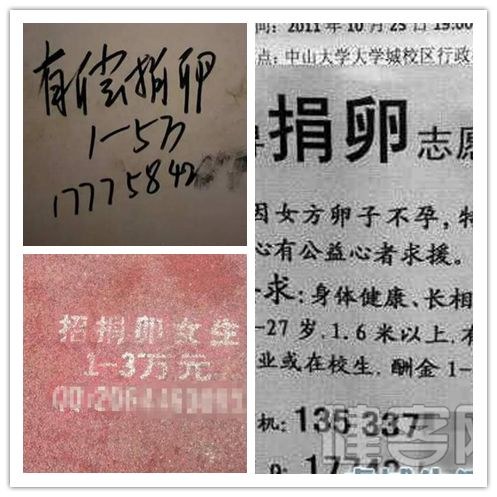 有偿捐卵
1-5万
17775842
招捐卵女生
1-3万元
QQ:206
间: 2011年10月25日 19:00
点: 中山大学大学城校区行政
捐卵志愿
因女方卵子不孕, 特
心有公益心者求援。
求: 身体健康、长相
-27岁, 1.6米以上, 有
业或在校生. 酬金1-
机: 135 337
Q: 177
健客网